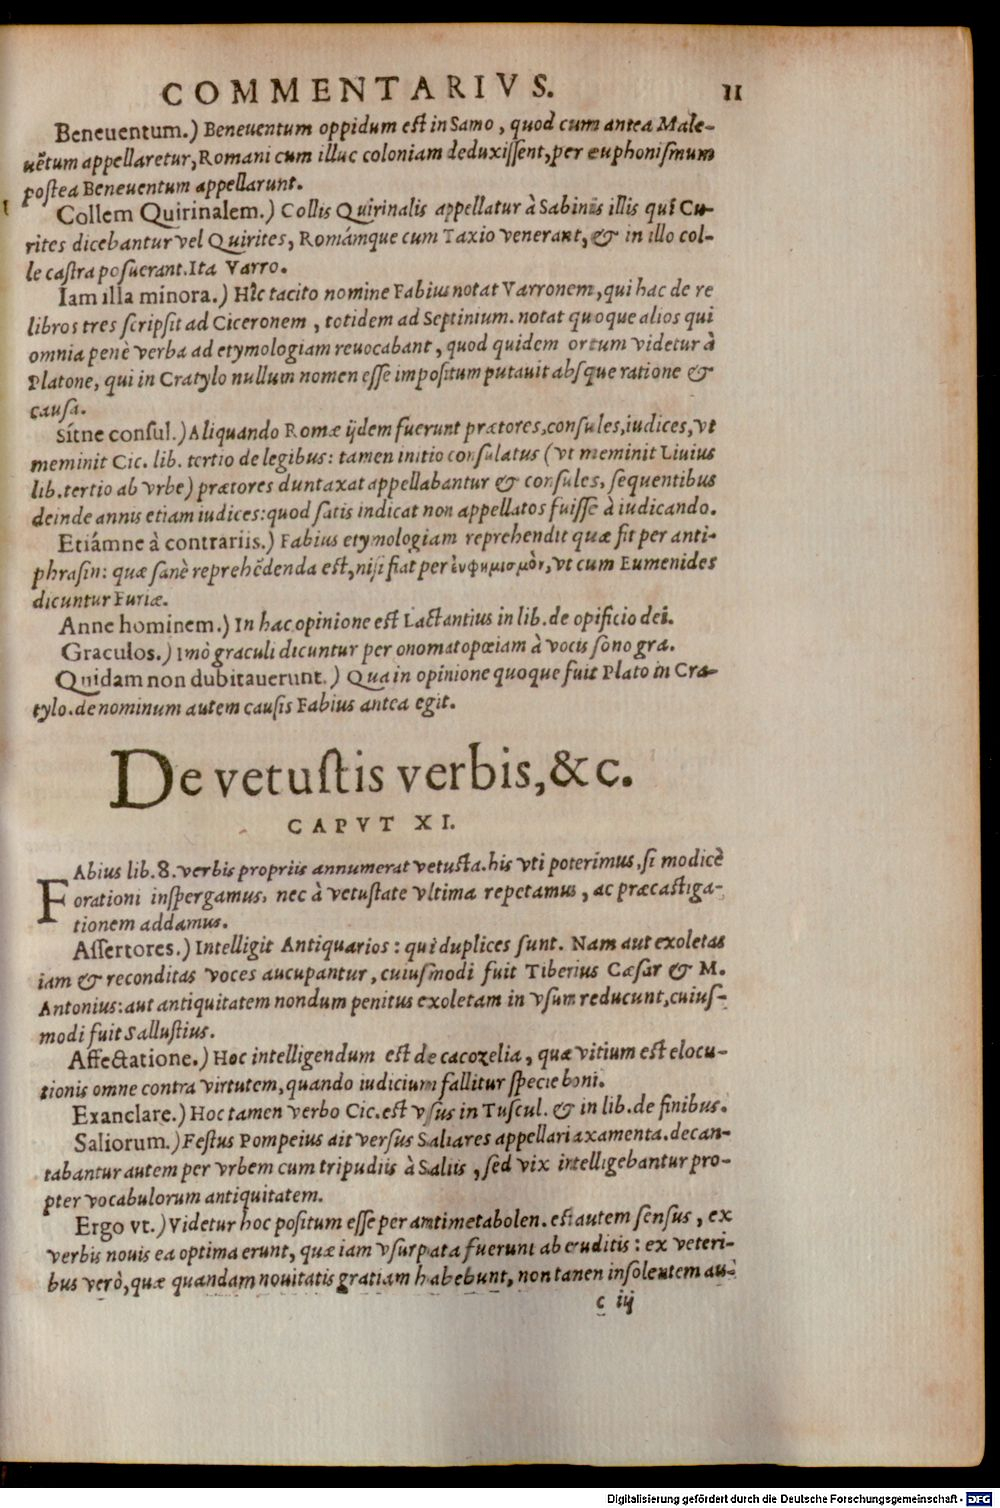 COMMENTARIVS. 11
Beneuentum.) Beneuentum oppidum est in Samo, quod cum antea Male-
uẽtum appellaretur, Romani cum illuc coloniam deduxissent, per euphonismum
postea Beneuentum appellarunt.
Collem Quirinalem.) Collis Quirinalis appellatur à Sabinis illis qui Cu-
rites dicebantur vel Quirites, Romámque cum Taxio venerant, & in illo col-
le castra posuerant. Ita Varro.
Iam illa minora.) Hîc tacito nomine Fabius notat Varronem, qui hac de re
libros tres scripsit ad Ciceronem, totidem ad Septinium. notat quoque alios qui
omnia penè verba ad etymologiam reuocabant, quod quidem ortum videtur à
Platone, qui in Cratylo nullum nomen esse impositum putauit absque ratione &
causa.
sítne consul.) Aliquando Romæ ijdem fuerunt prætores, consules, iudices, vt
meminit Cic. lib. tertio de legibus: tamen initio consulatus (vt meminit Liuius
lib. tertio ab vrbe) prætores duntaxat appellabantur & consules, sequentibus
deinde annis etiam iudices: quod satis indicat non appellatos fuisse à iudicando.
Etiámne à contrariis.) Fabius etymologiam reprehendit quæ fit per anti-
phrasin: quæ sanè reprehẽdenda est, nisi fiat per ἐυφημισμὸν, vt cum Eumenides
dicuntur Furiæ.
Anne hominem.) In hac opinione est Lactantius in lib. de opificio dei.
Graculos.) Imò graculi dicuntur per onomatopœiam à vocis sono gra.
Quidam non dubitauerunt.) Qua in opinione quoque fuit Plato in Cra-
tylo. de nominum autem causis Fabius antea egit.
De vetustis verbis, &c.
CAPVT XI.
FAbius lib. 8. verbis propriis annumerat vetusta. his vti poterimus, si modicè
orationi inspergamus, nec à vetustate vltima repetamus, ac præcastiga-
tionem addamus.
Assertores.) Intelligit Antiquarios: qui duplices sunt. Nam aut exoletas
iam & reconditas voces aucupantur, cuiusmodi fuit Tiberius Cæsar & M.
Antonius: aut antiquitatem nondum penitus exoletam in vsum reducunt, cuius-
modi fuit Sallustius.
Affectatione.) Hoc intelligendum est de cacozelia, quæ vitium est elocu-
tionis omne contra virtutem, quando iudicium fallitur specie boni.
Exanclare.) Hoc tamen verbo Cic. est vsus in Tuscul. & in lib. de finibus.
Saliorum.) Festus Pompeius ait versus Saliares appellari axamenta. decan-
tabantur autem per vrbem cum tripudiis à Saliis, sed vix intelligebantur pro-
pter vocabulorum antiquitatem.
Ergo vt.) Videtur hoc positum esse per antimetabolen. est autem sensus, ex
verbis nouis ea optima erunt, quæ iam vsurpata fuerunt ab eruditis: ex veteri-
bus verò, quæ quandam nouitatis gratiam habebunt, non tanen insolentem au-
c iij
Digitalisierung gefördert durch die Deutsche Forschungsgemeinschaft - DFG